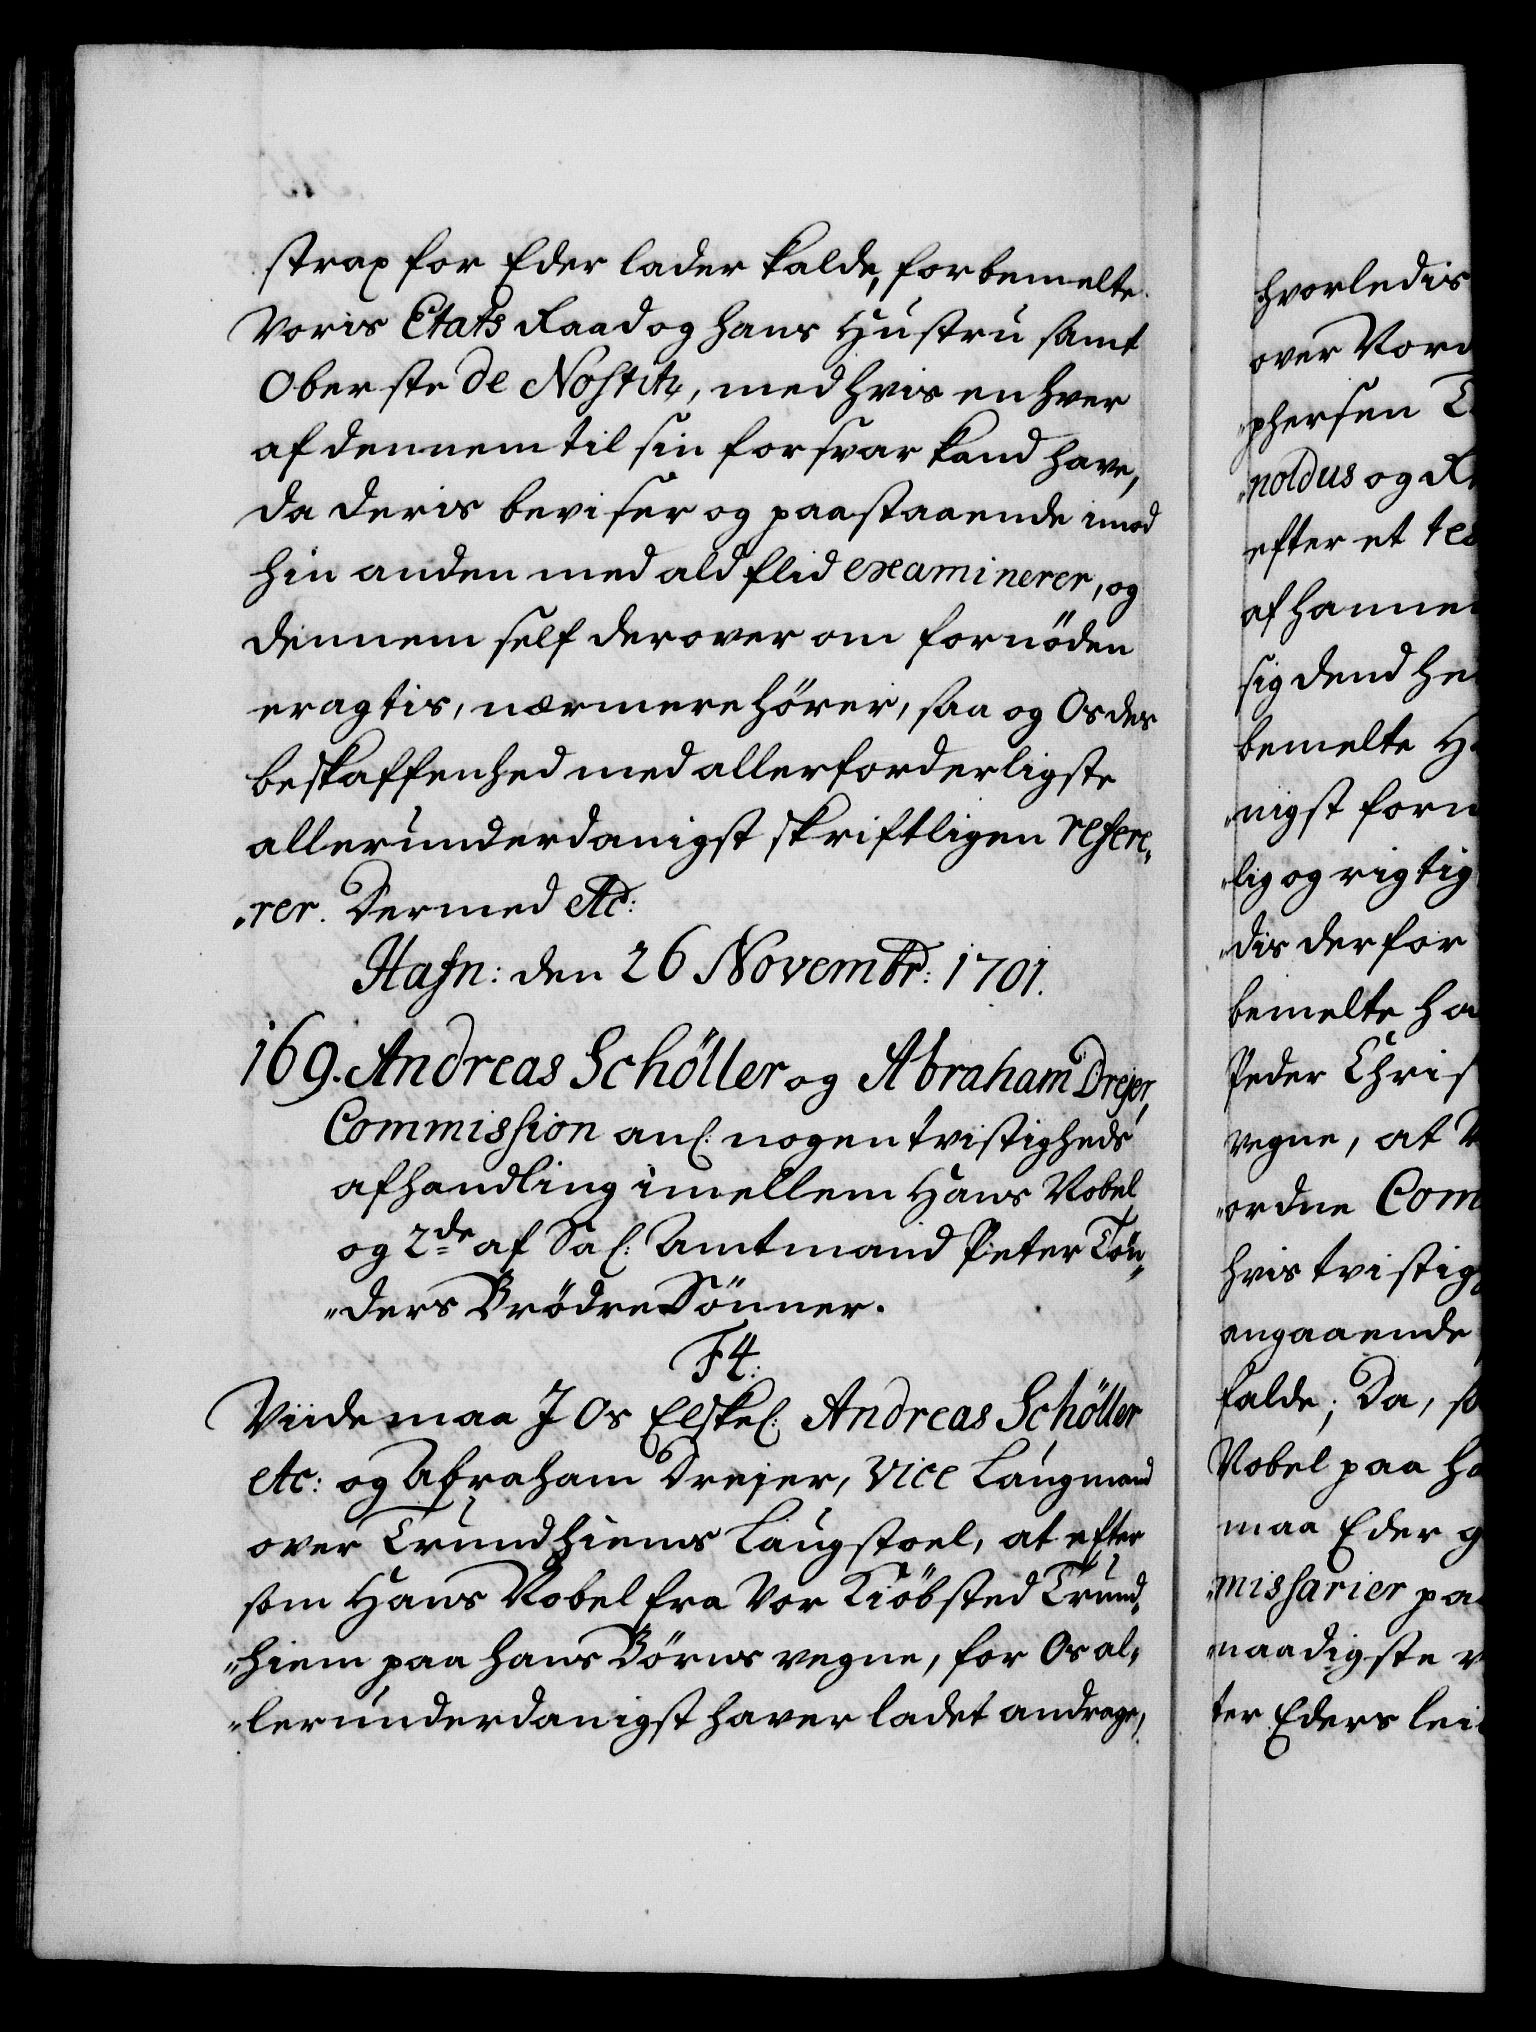 strax for Eder lader kalde, forbemelte
Voris Etats Raad og hans Hustru samt
Oberste de Nostitz, med hvis en hver
af dennem til sin forsvar kand have,
da deris beviser og paastaaende imod
hin anden med ald flid examinerer, og
dennem self derover om fornöden
eragtis, nærmere hörer, saa og Os des
beskaffenhed med allerforderligste
allerunderdanigst skriftligen refere„
„rer. Dermed etc:
Hafn: den 26 Novembr: 1701.
169. Andreas Schöller og Abraham Drejer,
Commission anl: nogen tvistigheds
afhandling imellem Hans Nobel
og 2de af Sal: Amtmand Peter Tön„
„ders Brödre Sönner.
F4:
Viide maa I Os Elskel: Andreas Schöller
etc: og Abraham Drejer, Vice Laugmand
over Trundhiems Laugstoel, at efter
som Hans Nobel fra Vor Kiöbsted Trund„
„hiem paa hans Börns vegne, for Os al„
„lerunderdanigst haver ladet andrage,
hvorledis
over Vord
„phersen T
„noldus og R
efter et tes
af hannem
sig dend he
bemelte H
„nigst forn
„lig og rigtig
„dis derfor
bemelte ha
Peder Chris
vegne, at V
„ordne Com
hvis tvistig
angaaende
falde; Da, s
Nobel paa ha
maa Eder g
„missarier pa
„naadigste v
ter Eders lei